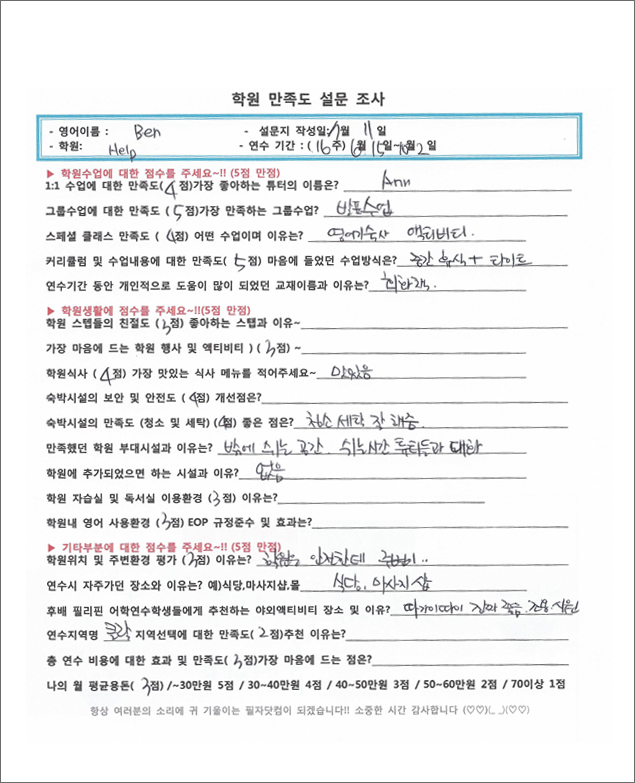 학원 만족도 설문 조사
- 영어이름 : Ben - 설문지 작성일:7월 11일
- 학원: Help - 연수 기간 : (16주) 6월 15일~10월2일
▶ 학원수업에 대한 점수를 주세요~!! (5점 만점)
1:1 수업에 대한 만족도(4점)가장 좋아하는 튜터의 이름은? Ann
그룹수업에 대한 만족도 (5점)가장 만족하는 그룹수업? 발표수업
스페셜 클래스 만족도 (4점) 어떤 수업이며 이유는? 영어기숙사 액티비티.
커리큘럼 및 수업내용에 대한 만족도(5점) 마음에 들었던 수업방식은? 중간 휴식 + 타이트
연수기간 동안 개인적으로 도움이 많이 되었던 교재이름과 이유는? 회화책.
▶ 학원생활에 점수를 주세요~!!(5점 만점)
학원 스텝들의 친절도 (3점) 좋아하는 스탭과 이유~
가장 마음에 드는 학원 행사 및 액티비티 ) (3점) ~
학원식사 (4점) 가장 맛있는 식사 메뉴를 적어주세요~ 맛있음
숙박시설의 보안 및 안전도 (4점) 개선점은?
숙박시설의 만족도 (청소 및 세탁) (4점) 좋은 점은? 청소 세탁 잘 해줌.
만족했던 학원 부대시설과 이유는? 밖에 쉬는 공간. 쉬는시간 튜터들과 대화
학원에 추가되었으면 하는 시설과 이유? 없음
학원 자습실 및 독서실 이용환경 (3점) 이유는?
학원내 영어 사용환경 (3점) EOP 규정준수 및 효과는?
▶ 기타부분에 대한 점수를 주세요~!! (5점 만점)
학원위치 및 주변환경 평가 (3점) 이유는? 학원은 안전한데 주변이..
연수시 자주가던 장소와 이유는? 예)식당,마사지샵,몰 식당, 마사지샵
후배 필리핀 어학연수학생들에게 추천하는 야외액티비티 장소 및 이유? 따가이따이
연수지역명 클락 지역선택에 대한 만족도(2점)추천 이유는?
총 연수 비용에 대한 효과 및 만족도(3점)가장 마음에 드는 점은?
나의 월 평균용돈(3점) /~30만원 5점 / 30~40만원 4점 / 40~50만원 3점 / 50~60만원 2점 / 70이상 1점
항상 여러분의 소리에 귀 기울이는 필자닷컴이 되겠습니다!! 소중한 시간 감사합니다 (♡♡)(_ _)(♡♡)